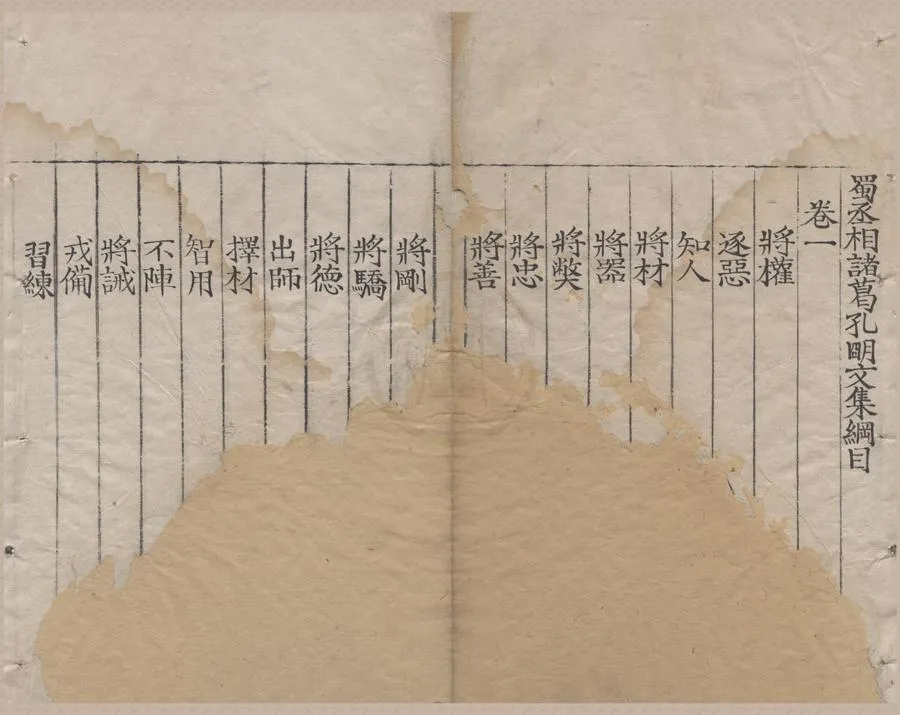 蜀丞相諸葛孔明文集綱目
卷一
將權
逐惡
知人
將材
將器
將弊
將忠
將善
將剛
將驕
將德
出師
擇材
智用
不陣
將誡
戎備
習練